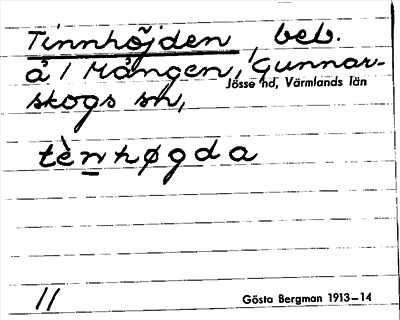 Tinnhöjden, beb.
å / Mången, Gunnar-
skogs sn,
Jösse hd, Värmlands län
tènhøgda
11
Gösta Bergman 1913–14